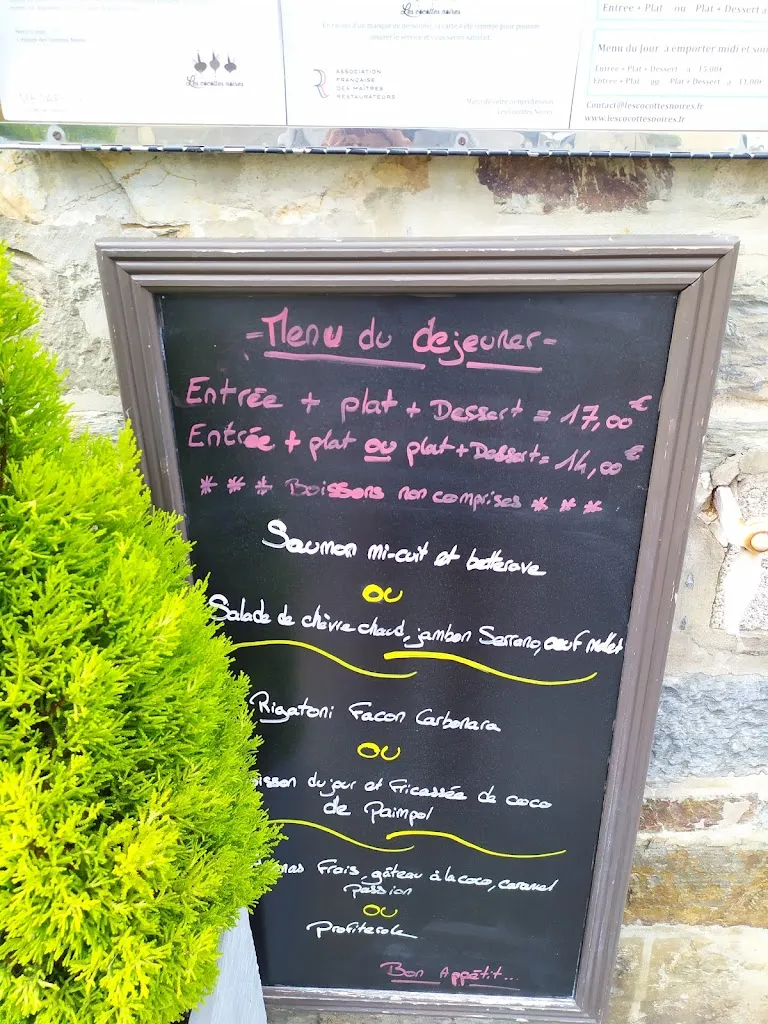 Les cocottes noires
Entrée + Plat ou Plat + Dessert
Menu du Jour à emporter midi et soir
Entrée + Plat + Dessert à 15.00€
Entrée + Plat ou Plat + Dessert à 13.00€
Contact@lescocottesnoires.fr
www.lescocottesnoires.fr
Les cocottes noires
ASSOCIATION
FRANÇAISE
DES MAÎTRES
RESTAURATEURS
Les Cocottes Noires
-Menu du dejeuner-
Entrée + plat + Dessert = 17,00€
Entrée + plat ou plat + Dessert = 14,00€
* * * Boissons non comprises * * *
Saumon mi-cuit et betterave
OU
Salade de chèvre chaud, jambon Serrano, oeuf mollet
Rigatoni Facon Carbonara
OU
isson du jour et Fricassée de coco
de Paimpol
nas Frais, gâteau à la coco, caramel
passion
OU
profiterole
Bon Appétit...